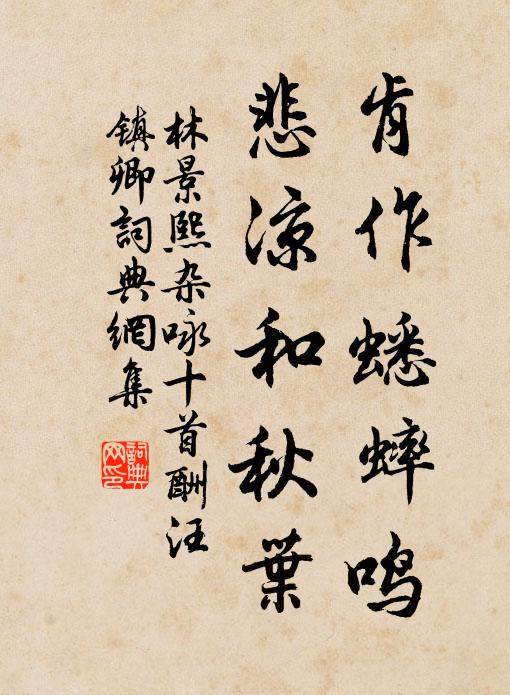 肯作蟋蟀鸣
悲凉和秋葉
林景熙杂咏十首酬汪
镇卿詞典網集
詞典
网印